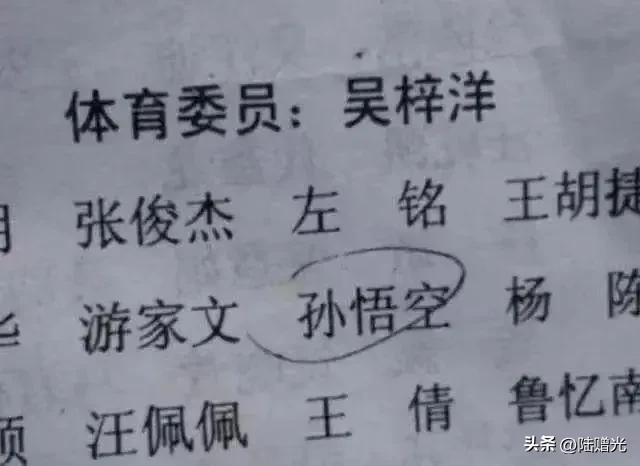 体育委员：吴梓洋
张俊杰 左 铭 王胡捷
游家文 孙悟空 杨 陈
汪佩佩 王 倩 鲁忆南
头条 @陆赠光